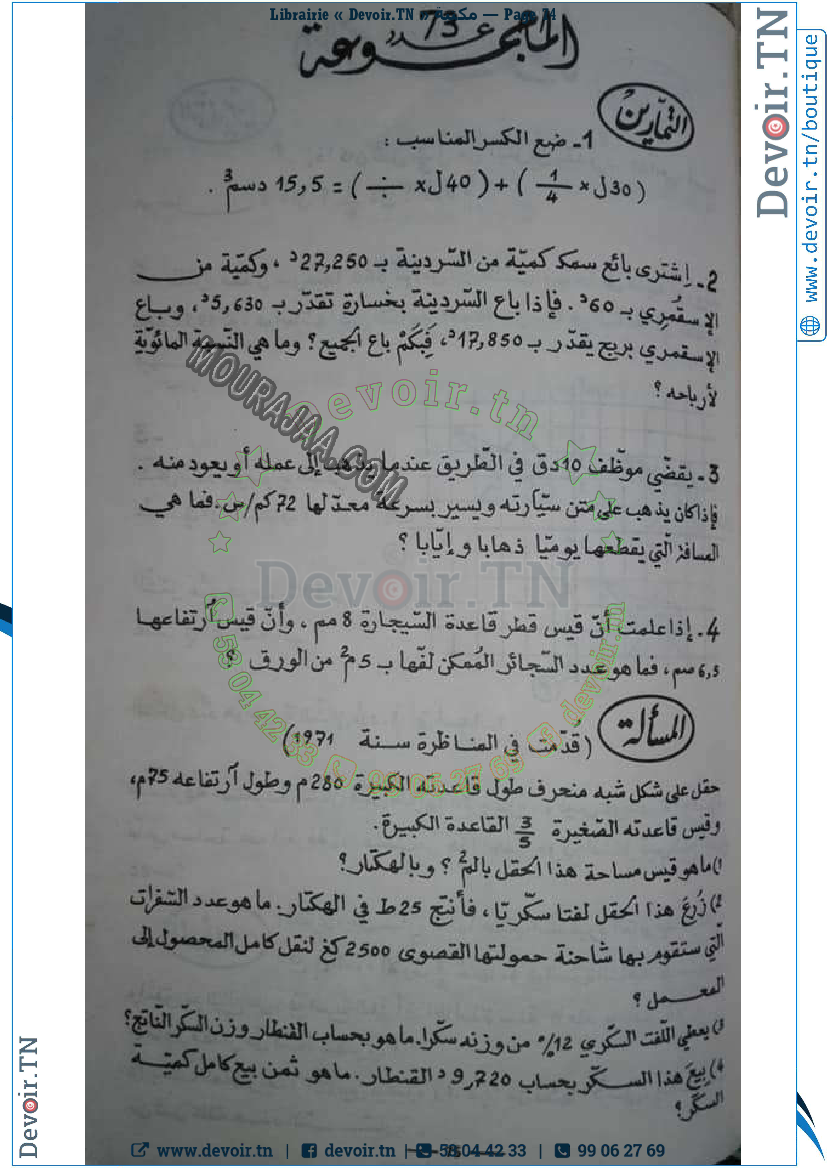 Librairie « Devoir.TN » مكتبة — Page 74
المجموعة عدد 73
التمارين
1- ضع الكسر المناسب :
(30ل × 1/4) + (40ل × ÷) = 15,5 دسم³ .
2- اشترى بائع سمك كميّة من السّردينة بـ 27,250د ، وكميّة من
الإسقُمري بـ 60د . فإذا باع السّردينة بخسارة تقدّر بـ 5,630د ، وباع
الإسقمري بربح يقدّر بـ 17,850د، فَبِكَمْ باع الجميع ؟ وما هي النّسبة المائويّة
لأرباحه ؟
3- يقضّي موظّف 10دق في الطّريق عندما يذهب إلى عمله أو يعود منه .
فإذا كان يذهب على متن سيّارته ويسير بسرعة معدّلها 72 كم/س، فما هي
المسافة الّتي يقطعها يوميّا ذهابا وإيّابا ؟
4- إذا علمت أنّ قيس قطر قاعدة السّيجارة 8 مم ، وأنّ قيس ارتفاعها
6,5 سم ، فما هو عدد السّجائر المُمكن لفّها بـ 5م² من الورق ؟
المسألة
(قُدّمت في المناظرة سنة 1971)
حقل على شكل شبه منحرف طول قاعدته الكبيرة 280م وطول ارتفاعه 75م،
وقيس قاعدته الصّغيرة 3/5 القاعدة الكبيرة.
1) ما هو قيس مساحة هذا الحقل بالم² ؟ وبالهكتار؟
2) زُرِعَ هذا الحقل لفتا سكّريّا ، فأنتج 25ط في الهكتار. ما هو عدد السّفرات
الّتي ستقوم بها شاحنة حمولتها القصوى 2500 كغ لنقل كامل المحصول إلى
المعمل ؟
3) يعطي اللّفت السّكّري 12% من وزنه سكّرا. ما هو بحساب القنطار وزن السكّر النّاتج؟
4) بِيعَ هذا السكّر بحساب 9,720د القنطار. ما هو ثمن بيع كامل كميّة
السكّر؟
MOURAJAA.COM
devoir.tn
Devoir.TN
58 04 42 33
99 06 27 69
devoir.tn
Devoir.TN
www.devoir.tn/boutique
Devoir.TN
www.devoir.tn | devoir.tn | 58 04 42 33 | 99 06 27 69